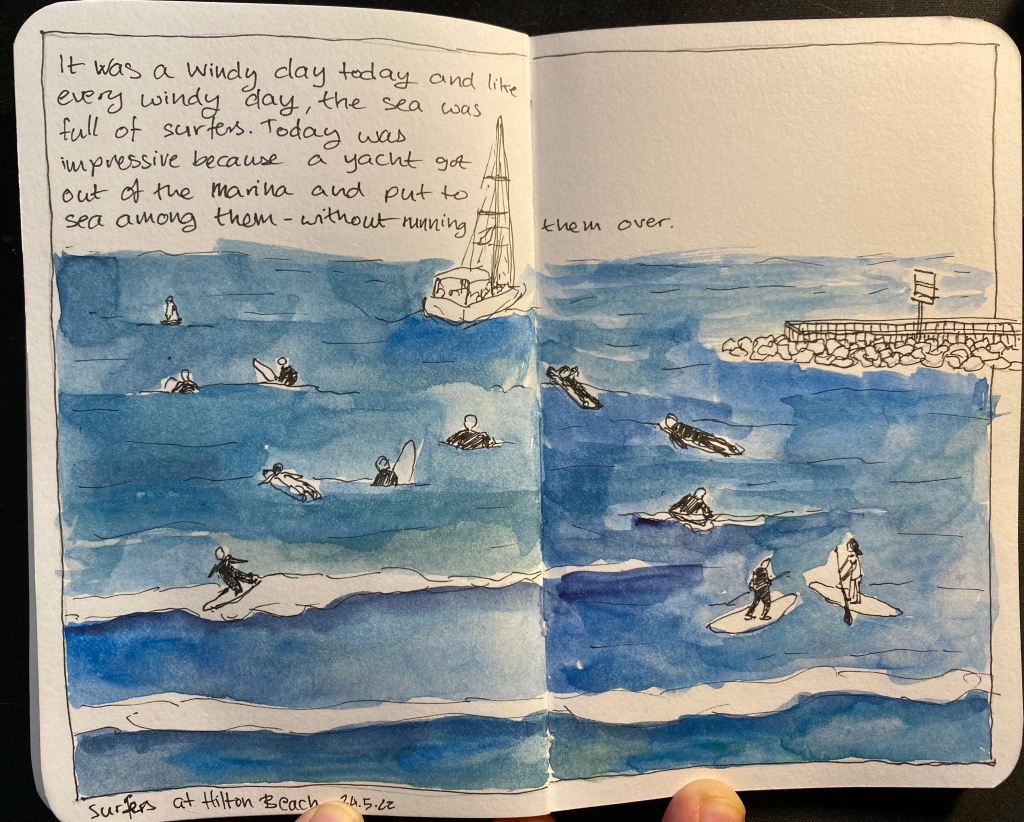 It was a windy day today and like
every windy day, the sea was
full of surfers. Today was
impressive because a yacht got
out of the marina and put to
sea among them - without running them over.
Surfers at Hilton Beach 24.5.22